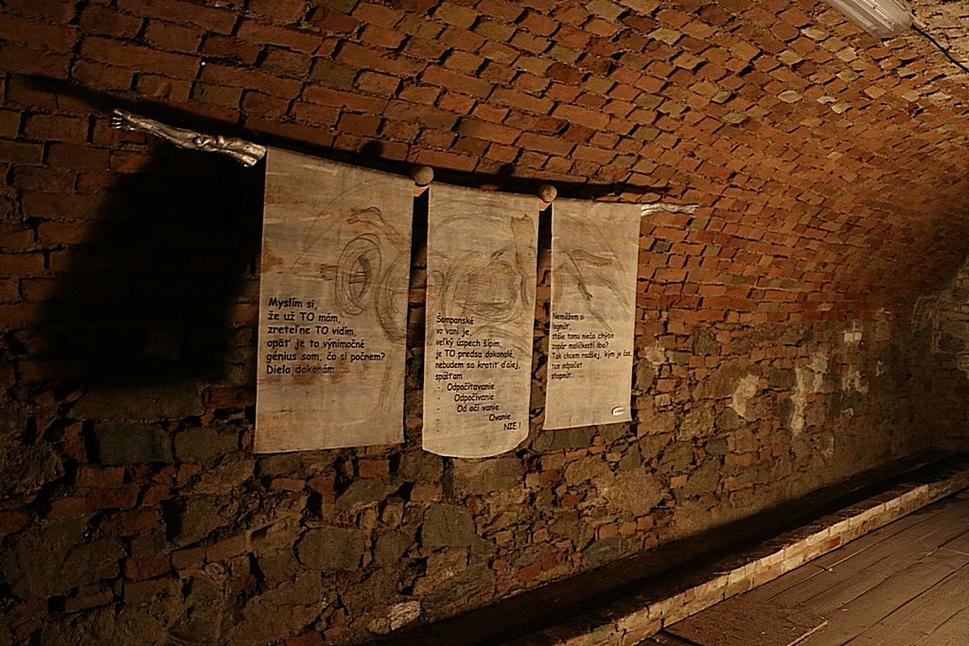 Myslím si,
že už TO mám,
zreteľne TO vidím,
opäť je to výnimočné
génius som, čo si počnem?
Dielo dokonám
Šampanské
vo vani je,
veľký úspech šípim,
je TO predsa dokonalé,
nebudem sa krotiť ďalej,
spúšťam
- Odpočítavanie
Odpočívanie
Od očí vanie
Ovanie
NIE !
Nemôžem si
ľahnúť,
stále tomu niečo chýba
zopár maličkostí iba?
Tak chcem radšej, kým je čas,
ten odpočet
stopnúť.